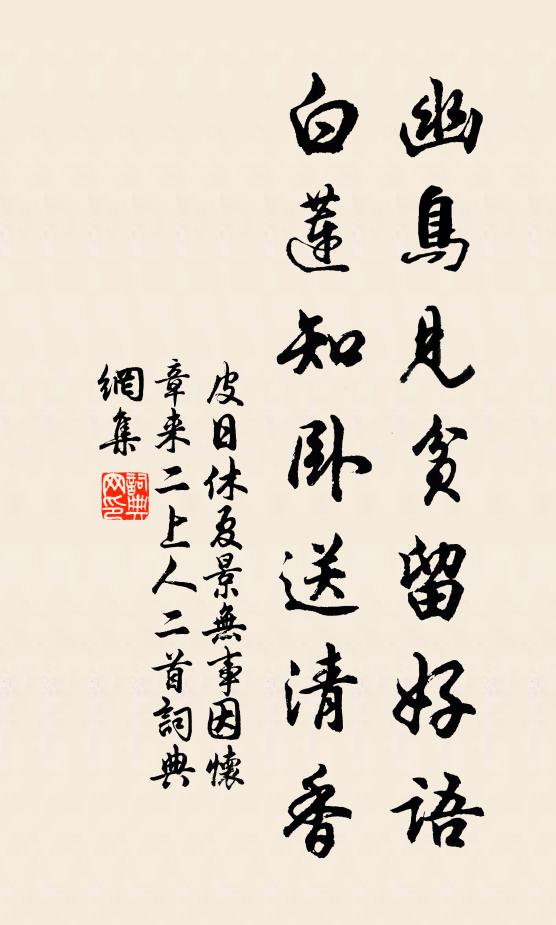 幽鳥見貧留好語
白蓮知卧送清香
皮日休夏景無事因懷
章来二上人二首詞典
網集
詞典
网印